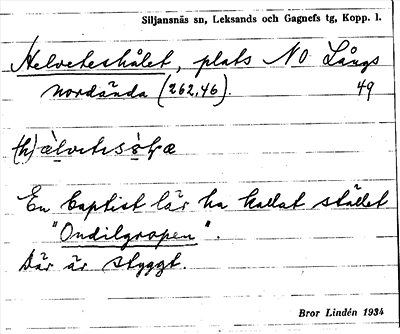 Siljansnäs sn, Leksands och Gagnefs tg, Kopp. l.
Helveteshålet, plats NO Långs
nordända (262,46). 49
En baptist lär ha kallat stället
"Ondilgropen".
Där är styggt.
Bror Lindén 1934